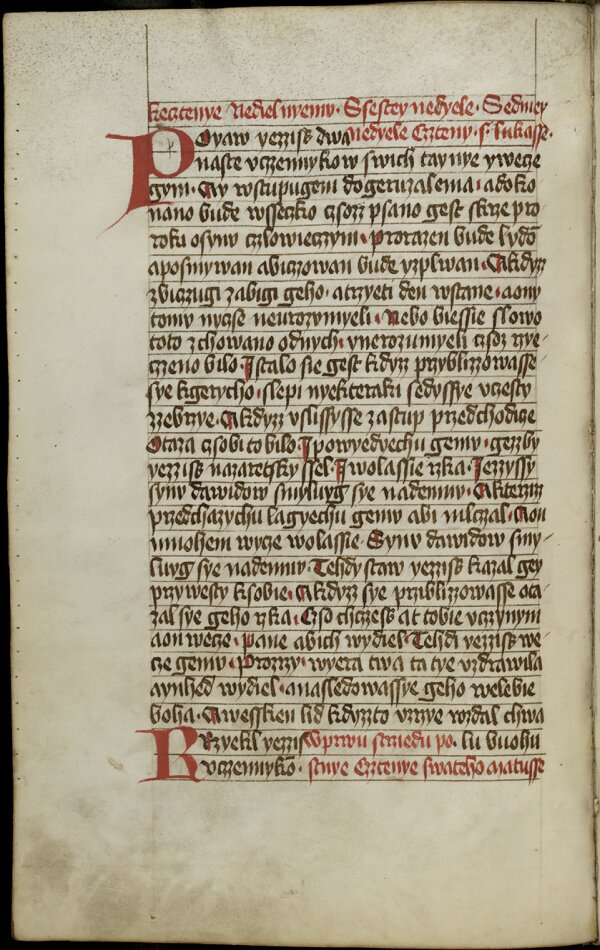 kecztenye Nedielnyemv · Sſeſtey nedyele · Sedmey
Poyaw yezziſs dwa nedyele Czteny · ſ · lukaſſe ·
naſte vczennykow ſwich taynye y wecze
gym · Ay wſtupugem do geruzalema · a doko
nano bude wſſeczko czozz pſano geſt ſkrze pro
roku o ſynv czlowieczym · prorazen bude lydō
a poſmywan a biczowan bude y zplwan · A kdyz
zbiczugi zabigi geho · a trzyeti den wſtane · a ony
tomv nyczſe neurozymyeli · Nebo bieſſie ſlowo
toto zchowano od nych · y nerozumyeli czoz rzye-
czeno bilo · J ſtalo ſie geſt kdyz przyblizzowaſſe
ſye k gerycho · ſlepi nyekteraku ſedyſſye v czeſty
zzebrzye · A kdyz vſliſſyſſe zaſtup przedchodicze
Otaza czſobi to bilo · J powyedyechu gemv · gezby
yezziſs nazaretſky ſſel · J wolaſſie rzka · Jezzyſſy
ſynv dawidow ſmyluyg ſye nademnv · A kterzyz
przedchazychu lagyechu gemv abi mlczal · A on
mnohem wycze wolaſſie · Synv dawidow ſmy-
luyg ſye nademnv · Tehdy ſtaw yezziſs kazal gey
przyweſty k ſobie · A kdyz ſye priblizzowaſſe ota
zal ſye geho rzka · Czſo chczeſs at tobie vczynym
a on wecze · pane abich wydiel · Tehdi yezziſs we-
cze gemv · Prozrzy · wyera twa ta tye vzdrawila
a ynhed wydiel · a naſledowaſſye geho welebie
boha · A weſſken lid kdyzto vzrzye wzdal chwa
Rzyekl yezziſs W prwu ſtrziedu po · lu buohu
vczennykō · ſtnye Cztenye ſwateho Matuſſe